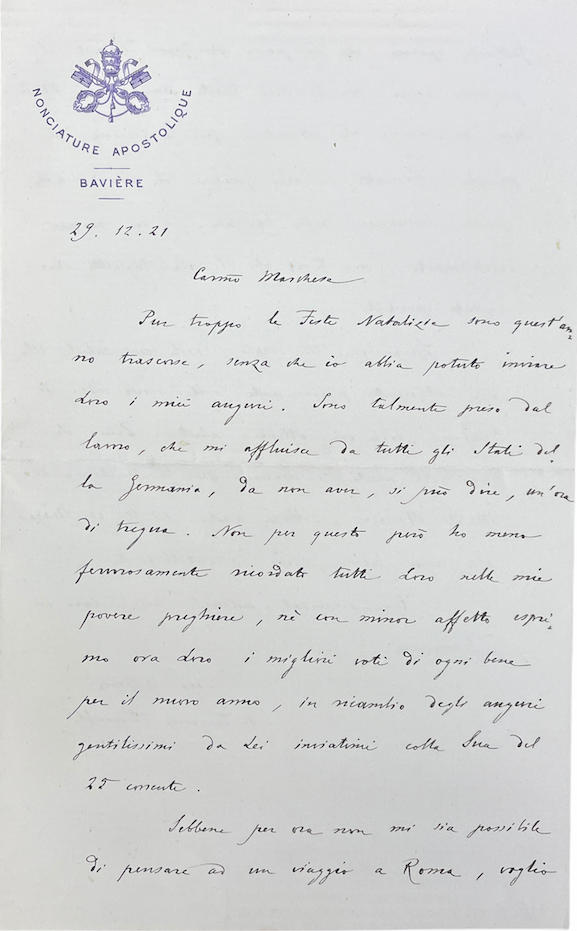 NONCIATURE APOSTOLIQUE
BAVIÈRE
29. 12. 21
Carmo Marchese
Pur troppo le Feste Natalizie sono quest'an=
no trascorse, senza che io abbia potuto inviare
Loro i miei auguri. Sono talmente preso dal
lavoro, che mi affluisce da tutti gli Stati del=
la Germania, da non aver, si può dire, un'ora
di tregua. Non per questo però ho meno
fervorosamente ricordato tutti Loro nelle mie
povere preghiere, nè con minor affetto espri=
mo ora Loro i migliori voti di ogni bene
per il nuovo anno, in ricambio degli auguri
gentilissimi da Lei inviatimi colla Sua del
25 corrente.
Sebbene per ora non mi sia possibile
di pensare ad un viaggio a Roma, voglio